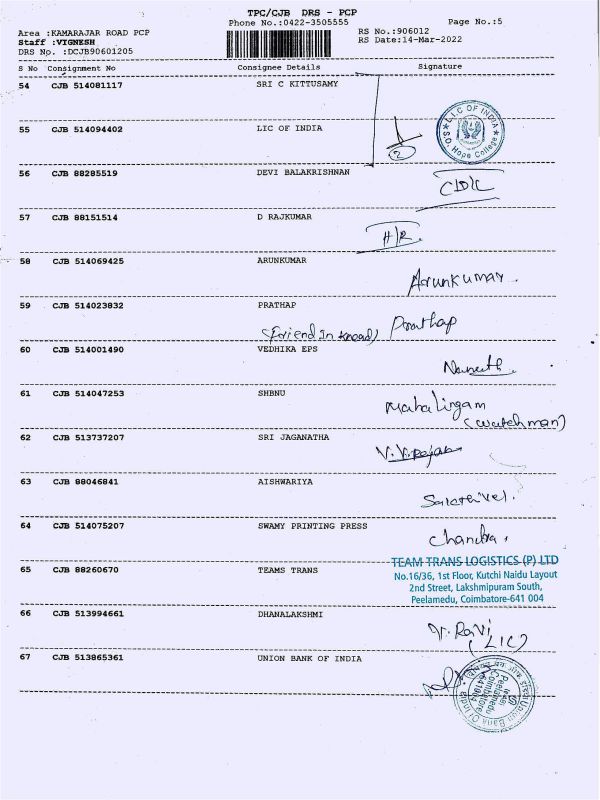 TPC/CJB DRS - PCP
Phone No.:0422-3505555
Page No.:5
Area :KAMARAJAR ROAD PCP
RS No.:906012
Staff :VIGNESH
RS Date:14-Mar-2022
DRS No. :DCJB90601205
S No Consignment No Consignee Details Signature
54 CJB 514081117 SRI C KITTUSAMY
55 CJB 514094402 LIC OF INDIA
2
L.I.C OF INDIA
S.O. Hope College
56 CJB 88285519 DEVI BALAKRISHNAN
57 CJB 88151514 D RAJKUMAR
H/R
58 CJB 514069425 ARUNKUMAR
Arunkumar.
59 CJB 514023832 PRATHAP
Prathap
60 CJB 514001490 VEDHIKA EPS
61 CJB 514047253 SHBNU
Mahalingam
(watchman)
62 CJB 513737207 SRI JAGANATHA
63 CJB 88046841 AISHWARIYA
64 CJB 514075207 SWAMY PRINTING PRESS
Chandra.
65 CJB 88260670 TEAMS TRANS
TEAM TRANS LOGISTICS (P) LTD
No.16/36, 1st Floor, Kutchi Naidu Layout
2nd Street, Lakshmipuram South,
Peelamedu, Coimbatore-641 004
66 CJB 513994661 DHANALAKSHMI
V. Ravi
(LIC)
67 CJB 513865361 UNION BANK OF INDIA
Union Bank Of India
Peelamedu
Coimbatore